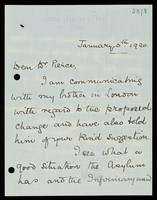 January 1920
Dear Dr. Pierce,
I am communicating
with my brother in London
with regard to the proposed
change and have also told
him of your kind suggestion.
I see what a
good situation the Asylum
has and the Infirmary and